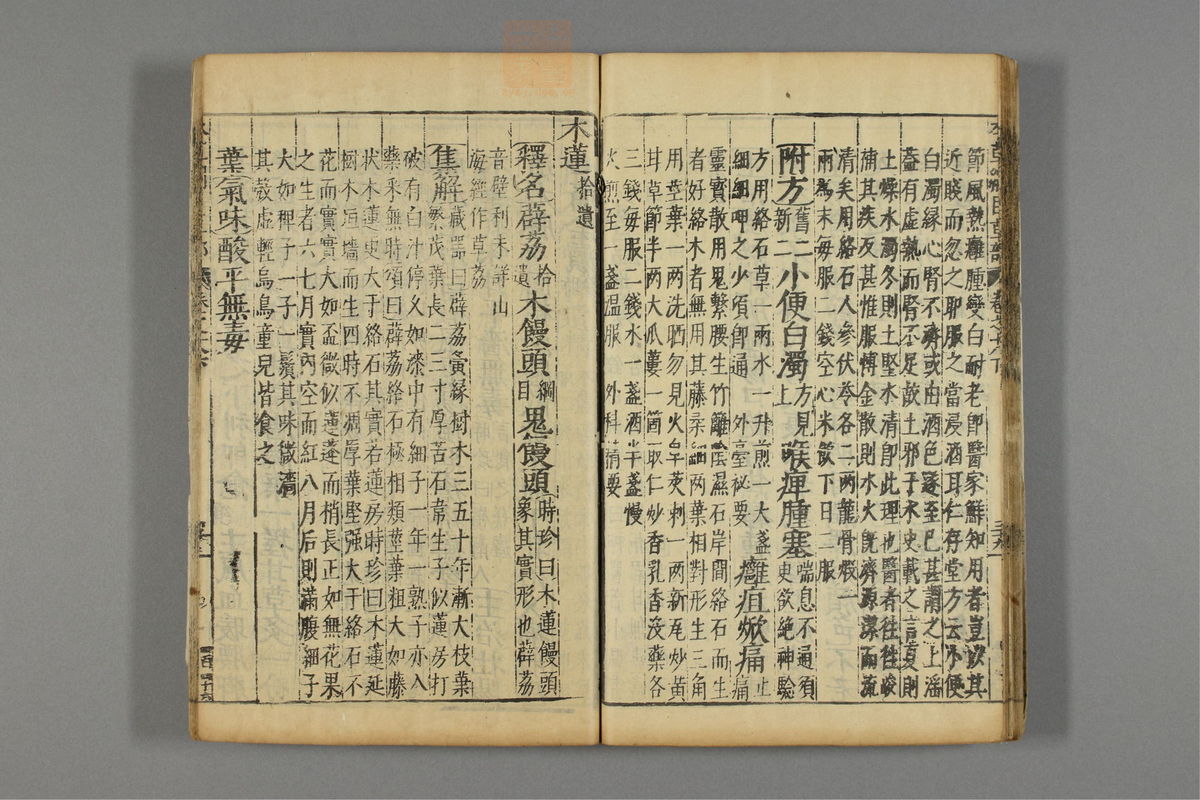 節風熱癰腫變白耐老即醫家鮮知用者豈以其
近賤而忽之耶服之當浸酒耳仁存堂方云小便
白濁緣心腎不濟或由酒色遂至已甚謂之上淫
蓋有虛熱而腎不足故土邪干水史載之言夏則
土燥水濁冬則土堅水清即此理也醫者往往峻
補其疾反甚惟服博金散則水火既濟源潔而流
清矣用絡石人參伏苓各二兩龍骨煅一
兩爲末每服二錢空心米飲下日二服
附方舊二新二小便白濁方見上喉痺腫塞喘息不通須臾欲絕神驗
方用絡石草一兩水一升煎一大盞
細細呷之少頃即通 外臺祕要 癰疽焮痛止痛
靈寶散用鬼繫腰生竹籬陰濕石岸間絡石而生
者好絡木者無用其藤柔細兩葉相對形生三角
用莖葉一兩洗晒勿見火皁莢刺一兩新瓦炒黃
甘草節半兩大瓜蔞一箇取仁炒香乳香没藥各
三錢每服二錢水一盞酒半盞慢
火煎至一盞温服 外科精要
木蓮拾遺
釋名薜荔拾遺木饅頭綱目鬼饅頭時珍曰木蓮饅頭象其實形也薜荔
音壁利未詳山
海經作草荔
集解藏器曰薜荔夤縁樹木三五十年漸大枝葉
繁茂葉長二三寸厚若石韋生子似蓮房打
破有白汁停久如漆中有細子一年一熟子亦入
藥采無時頌曰薜荔絡石極相類莖葉粗大如藤
状木蓮更大于絡石其實若蓮房時珍曰木蓮延
樹木垣墻而生四時不凋厚葉堅强大于絡石不
花而實實大如盃微似蓮蓬而稍長正如無花果
之生者六七月實內空而紅八月后則滿腹細子
大如稗子一子一鬚其味微濇
其殼虛輕烏鳥童兒皆食之
葉氣味酸平無毒